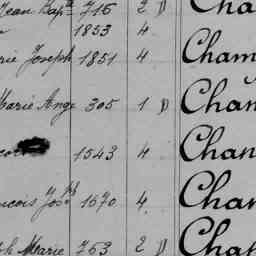 Jean Bapt. 716 2 D Cha
1853 4
rie Joseph 1851 4 Cham
Marie Ange 305 1 D Cham
1543 4 Chan
ncois Josph 1670 4. Chan
ph Marie 763 2 D Chap